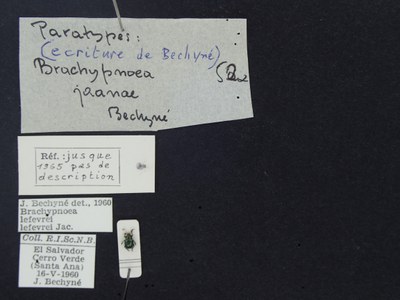 Paratypes:
(ecriture de Bechyné)
Brachypnoea
jaanae
Bechyné
Réf.: jusque
1955 pas de
description
J. Bechyné det., 1960
Brachypnoea
lefevrei
lefevrei Jac.
Coll. R.I.Sc.N.B.
El Salvador
Cerro Verde
(Santa Ana)
16-V-1960
J. Bechyné